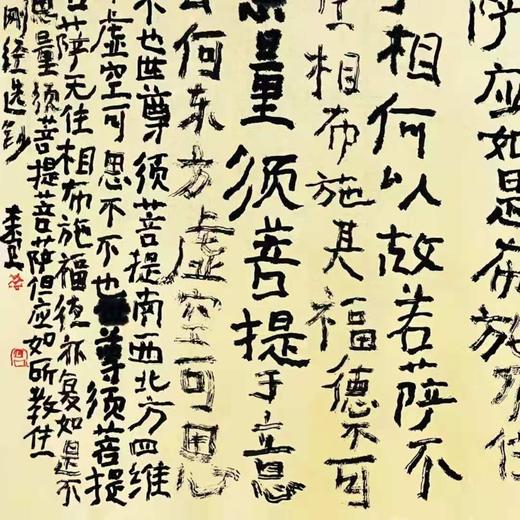 萨应如是布施不住
于相何以故若菩萨不
住相布施其福德不可
思量须菩提于意
云何东方虚空可思
不也世尊须菩提南西北方四维
下虚空可思不不也世尊须菩提
菩萨无住相布施福德亦复如是不
思量须菩提菩萨但应如所教住
刚经选钞